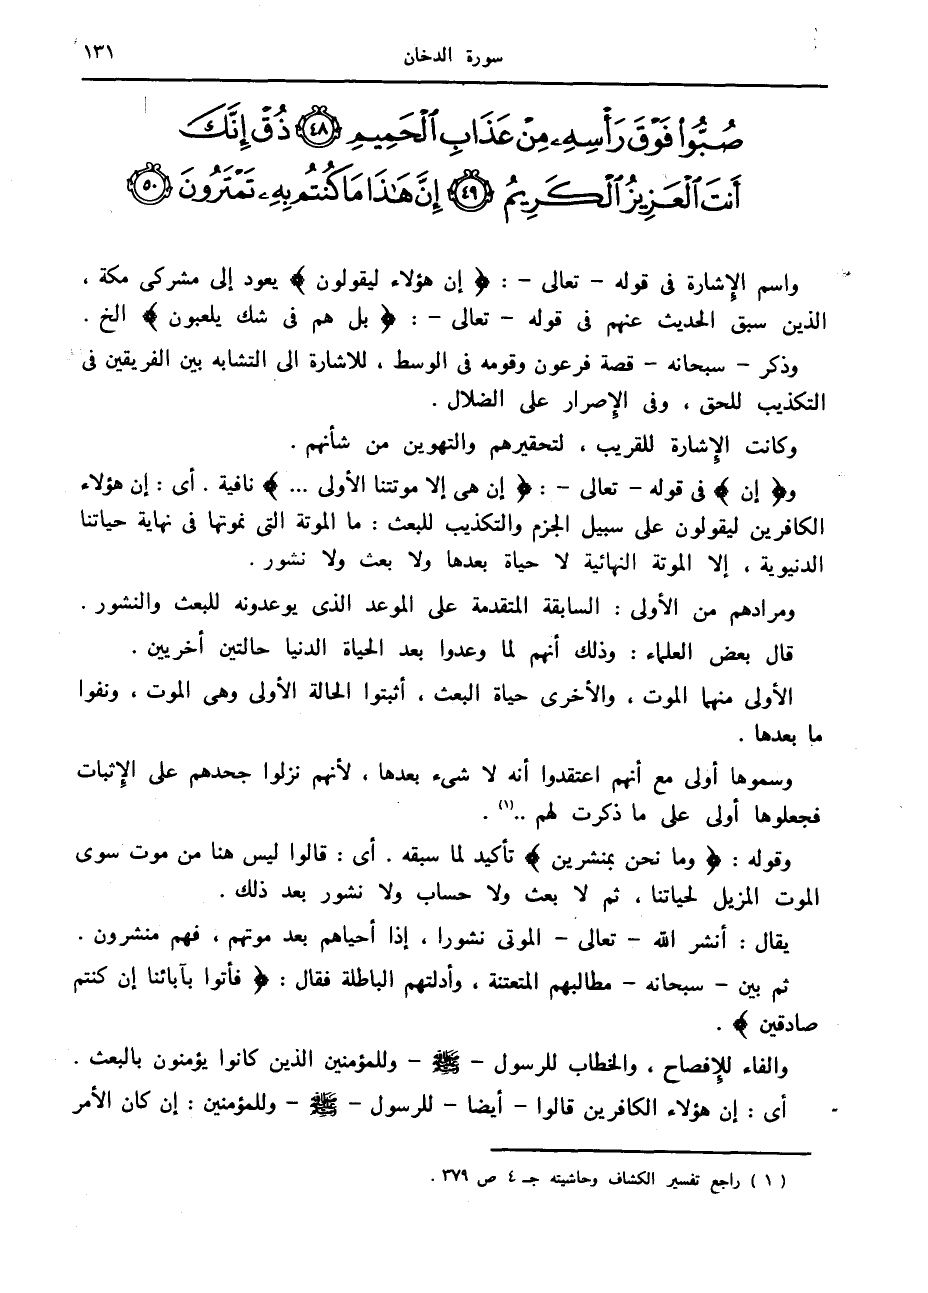 سورة الدخان ١٣١
صُبُّوا۟ فَوْقَ رَأْسِهِۦ مِنْ عَذَابِ ٱلْحَمِيمِ ٤٨ ذُقْ إِنَّكَ
أَنتَ ٱلْعَزِيزُ ٱلْكَرِيمُ ٤٩ إِنَّ هَٰذَا مَا كُنتُم بِهِۦ تَمْتَرُونَ ٥٠
واسم الإشارة فى قوله – تعالى – : ﴿ إن هؤلاء ليقولون ﴾ يعود إلى مشركى مكة ،
الذين سبق الحديث عنهم فى قوله – تعالى – : ﴿ بل هم فى شك يلعبون ﴾ الخ .
وذكر – سبحانه – قصة فرعون وقومه فى الوسط ، للاشارة الى التشابه بين الفريقين فى
التكذيب للحق ، وفى الإصرار على الضلال .
وكانت الإشارة للقريب ، لتحقيرهم والتهوين من شأنهم .
و﴿ إن ﴾ فى قوله – تعالى – : ﴿ إن هى إلا موتتنا الأولى ... ﴾ نافية . أى : إن هؤلاء
الكافرين ليقولون على سبيل الجزم والتكذيب للبعث : ما الموتة التى نموتها فى نهاية حياتنا
الدنيوية ، إلا الموتة النهائية لا حياة بعدها ولا بعث ولا نشور .
ومرادهم من الأولى : السابقة المتقدمة على الموعد الذى يوعدونه للبعث والنشور .
قال بعض العلماء : وذلك أنهم لما وعدوا بعد الحياة الدنيا حالتين أخريين .
الأولى منهما الموت ، والأخرى حياة البعث ، أثبتوا الحالة الأولى وهى الموت ، ونفوا
ما بعدها .
وسموها أولى مع أنهم اعتقدوا أنه لا شىء بعدها ، لأنهم نزلوا جحدهم على الإثبات
فجعلوها أولى على ما ذكرت لهم ..(١) .
وقوله : ﴿ وما نحن بمنشرين ﴾ تأكيد لما سبقه . أى : قالوا ليس هنا من موت سوى
الموت المزيل لحياتنا ، ثم لا بعث ولا حساب ولا نشور بعد ذلك .
يقال : أنشر الله – تعالى – الموتى نشورا ، إذا أحياهم بعد موتهم ، فهم منشرون .
ثم بين – سبحانه – مطالبهم المتعنتة ، وأدلتهم الباطلة فقال : ﴿ فأتوا بآبائنا إن كنتم
صادقين ﴾ .
والفاء للإفصاح ، والخطاب للرسول – ﷺ – وللمؤمنين الذين كانوا يؤمنون بالبعث .
أى : إن هؤلاء الكافرين قالوا – أيضا – للرسول – ﷺ – وللمؤمنين : إن كان الأمر
( ١ ) راجع تفسير الكشاف وحاشيته جـ ٤ ص ٣٧٩ .